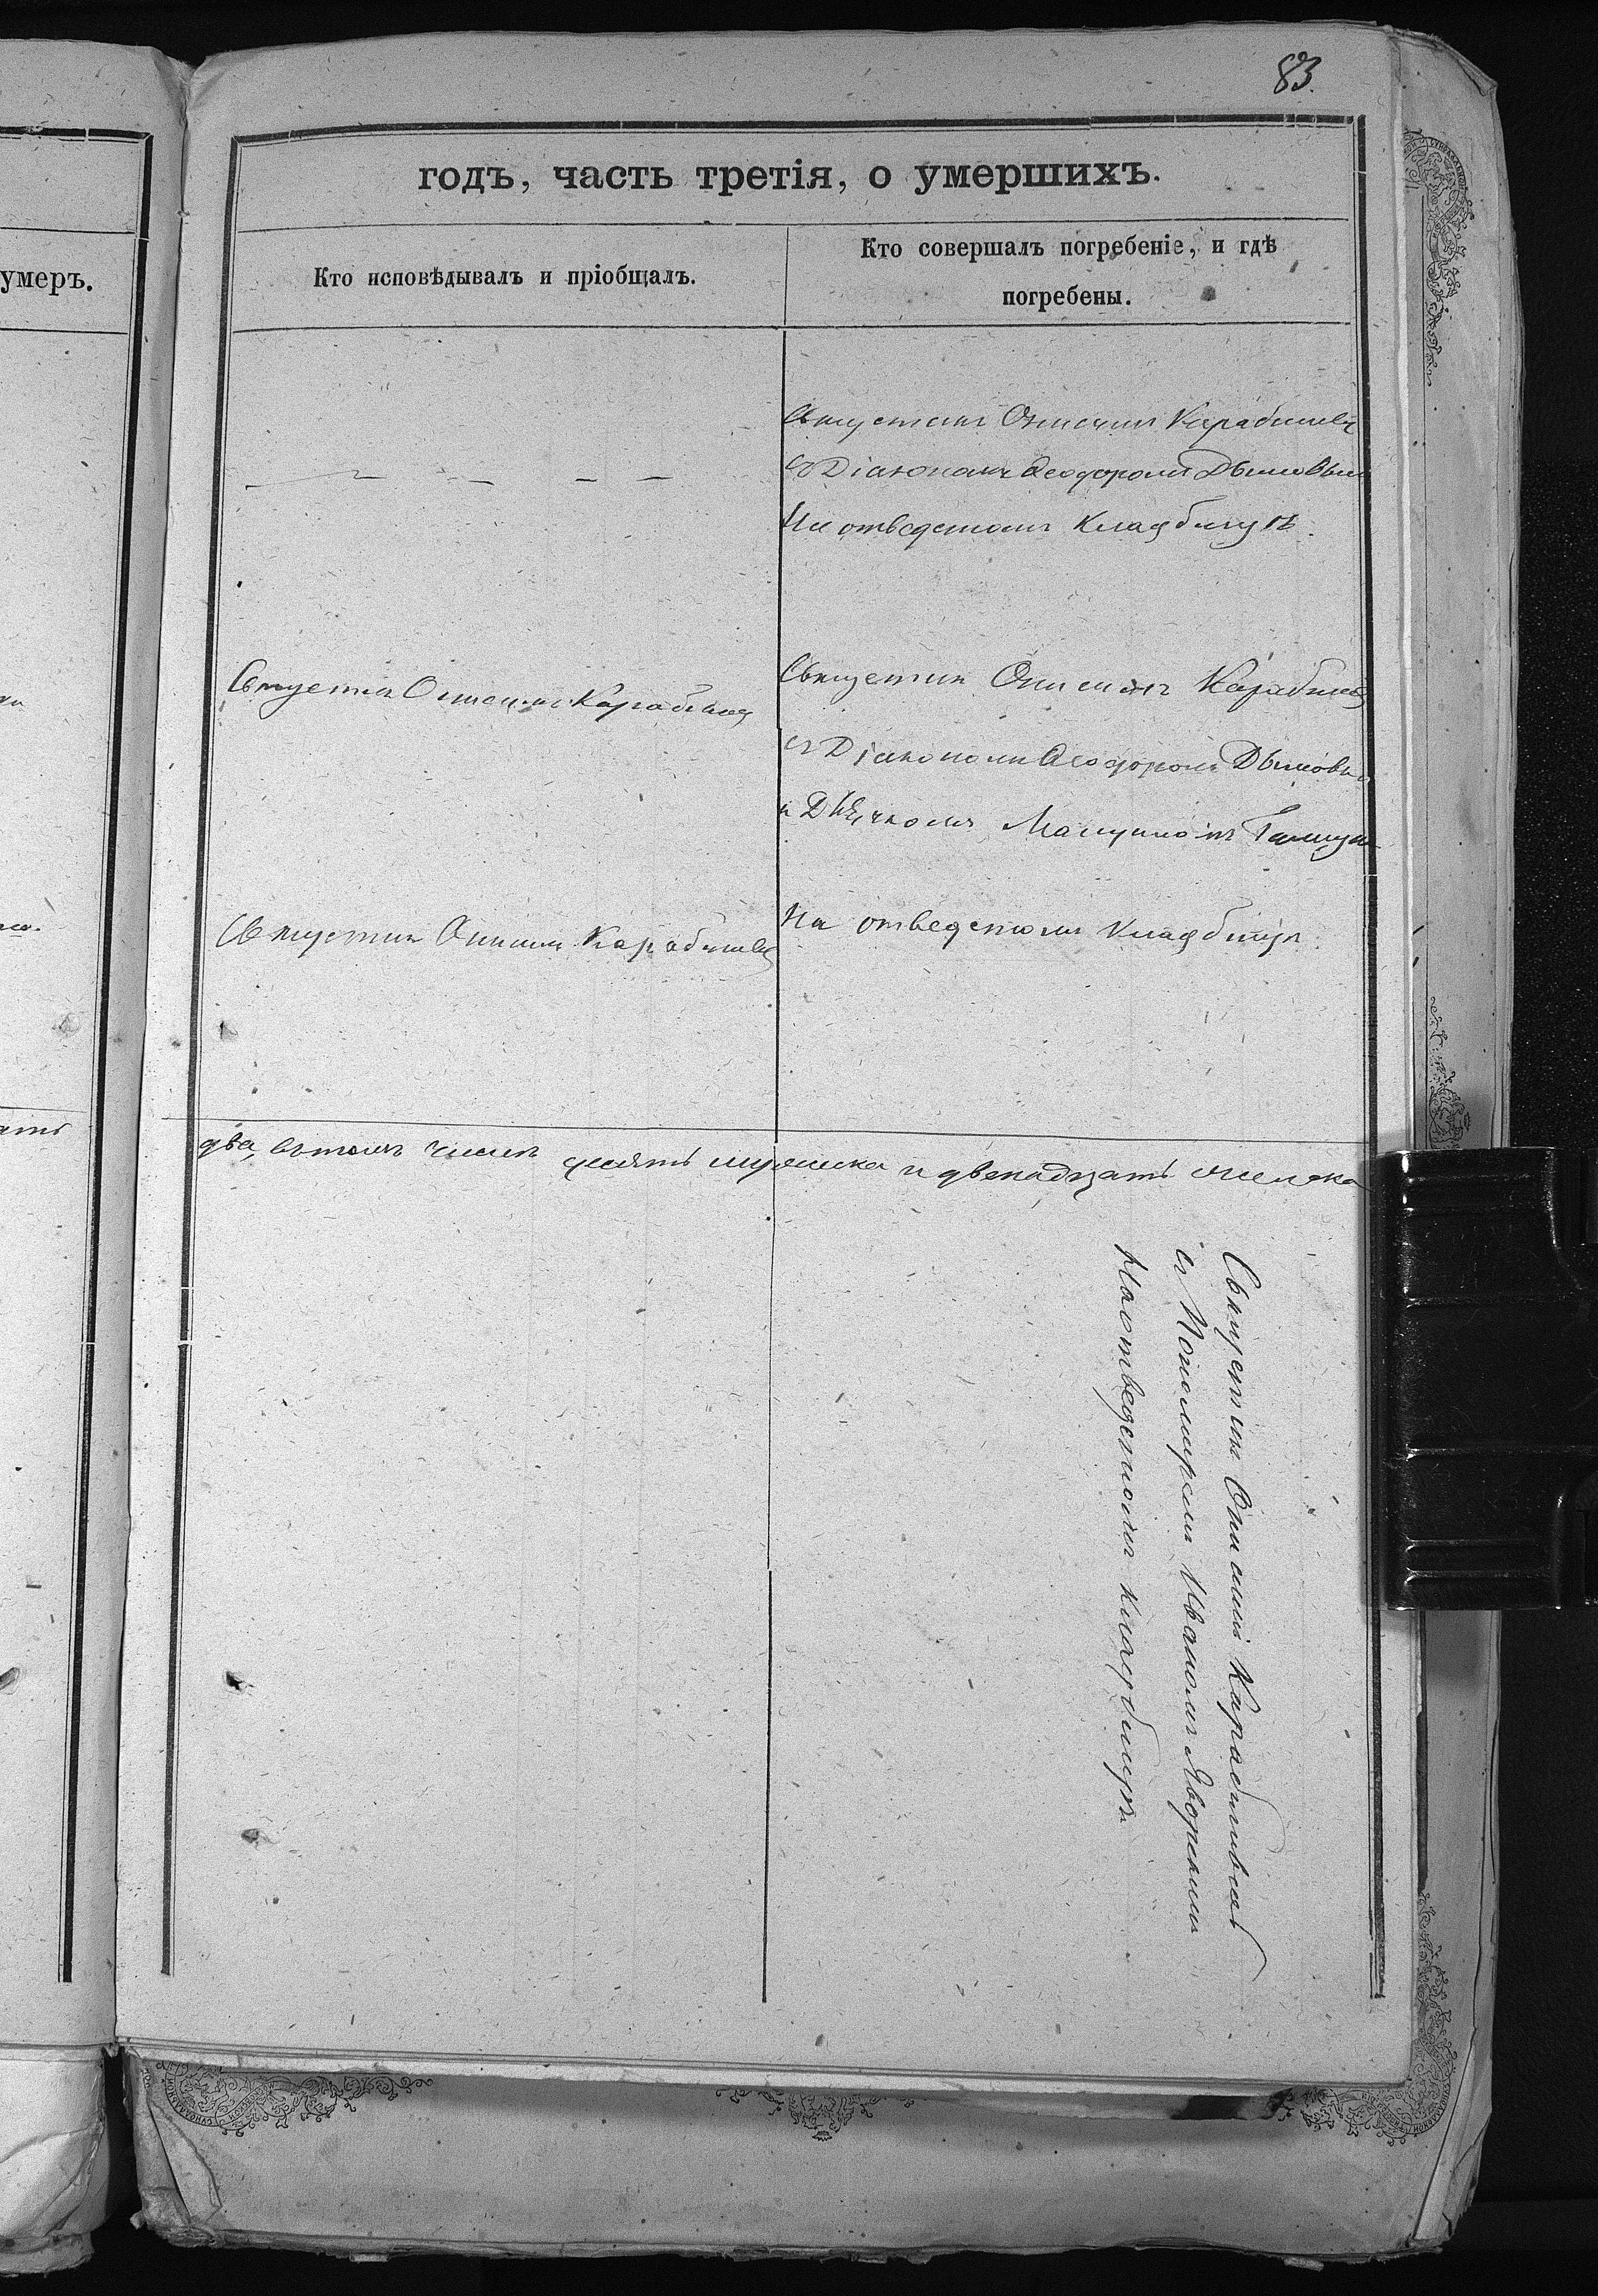 83.
годъ, часть третія, о умершихъ.
умеръ.
Кто исповѣдывалъ и пріобщалъ.
Кто совершалъ погребеніе, и гдѣ
погребены.
Священникъ Онисимъ Карабиневъ
съ Діакономъ Ѳеодоромъ Дымовым
На отведеномъ кладбищѣ.
Священникъ Онисимъ Карабинев
Священникъ Онисимъ Карабинев
съ Діакономъ Ѳеодоромъ Дымовым
и Дьячкомъ
На отведеномъ кладбищѣ.
Священникъ Онисимъ Карабинев
два, вътомъ числѣ десять мужеска и двенадцать женска
Священникъ Онисимъ Карабиневъ
съ Пономаремъ Иваномъ Яворскимъ
На отведеномъ кладбищѣ